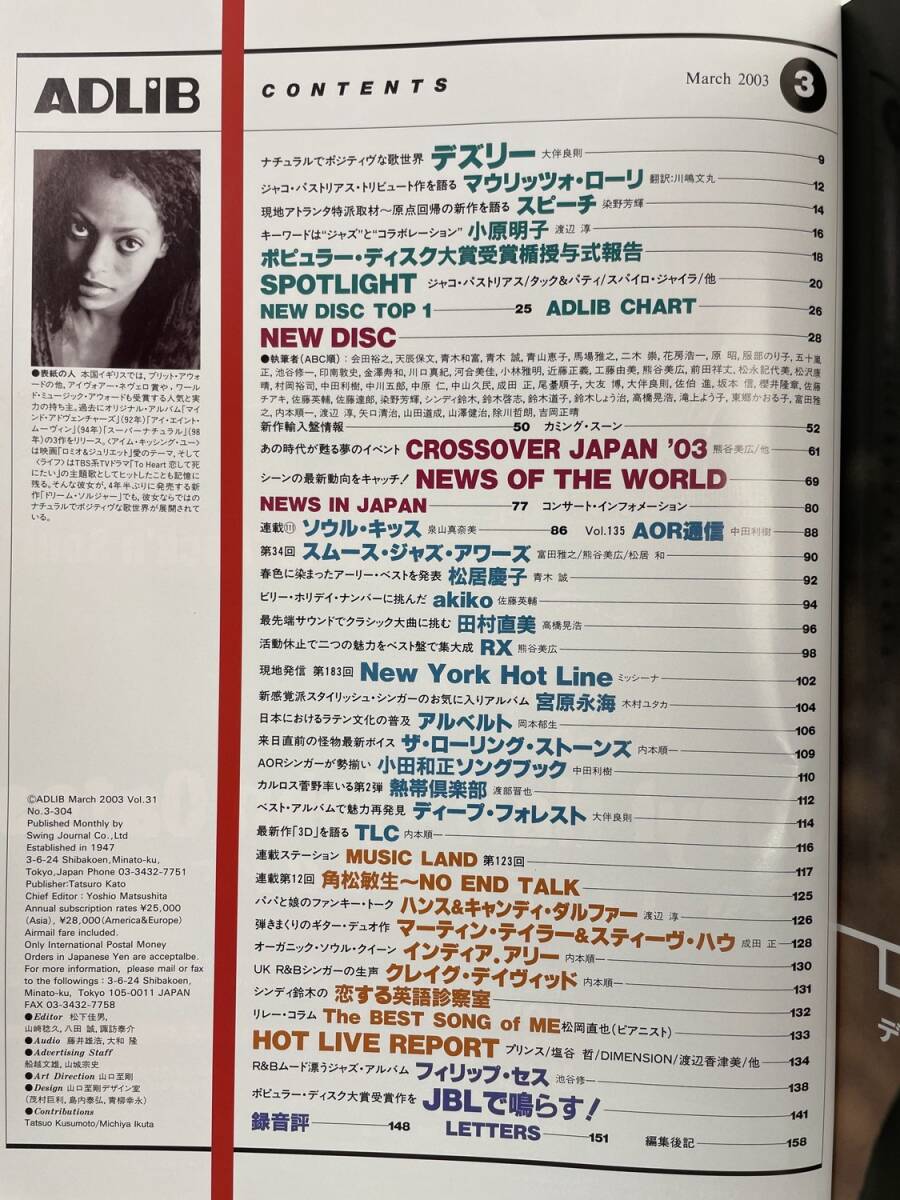 ADLiB
CONTENTS
March 2003
3
●表紙の人 本国イギリスでは、ブリット・アウォ
ードの他、アイヴォアー・ネヴェロ賞や、ワール
ド・ミュージック・アウォードも受賞する人気と実
力の持ち主。過去にオリジナル・アルバム「マイ
ンド・アドヴェンチャーズ」(92年)「アイ・エイント・
ムーヴィン」(94年)「スーパーナチュラル」(98
年)の3作をリリース。〈アイム・キッシング・ユー〉
は映画「ロミオ&ジュリエット」愛のテーマ、そして
〈ライフ〉はTBS系TVドラマ「To Heart 恋して死
にたい」の主題歌としてヒットしたことも記憶に
残る。そんな彼女が、4年半ぶりに発売する新
作「ドリーム・ソルジャー」でも、彼女ならではの
ナチュラルでポジティヴな歌世界が展開されて
いる。
©ADLIB March 2003 Vol.31
No.3-304
Published Monthly by
Swing Journal Co.,Ltd
Established in 1947
3-6-24 Shibakoen,Minato-ku,
Tokyo,Japan Phone 03-3432-7751
Publisher:Tatsuro Kato
Chief Editor : Yoshio Matsushita
Annual subscription rates ¥25,000
(Asia), ¥28,000(America&Europe)
Airmail fare included.
Only International Postal Money
Orders in Japanese Yen are acceptalbe.
For more information, please mail or fax
to the followings : 3-6-24 Shibakoen,
Minato-ku, Tokyo 105-0011 JAPAN
FAX 03-3432-7758
●Editor 松下佳男,
山崎稔久, 八田 誠, 諏訪泰介
●Audio 藤井雄浩, 大和 隆
●Advertising Staff
船越文雄, 山城宗史
●Art Direction 山口至剛
●Design 山口至剛デザイン室
(茂村巨利, 島内泰弘, 青柳幸永)
●Contributions
Tatsuo Kusumoto/Michiya Ikuta
ナチュラルでポジティヴな歌世界 デズリー 大伴良則 9
ジャコ・パストリアス・トリビュート作を語る マウリッツォ・ローリ 翻訳:川嶋文丸 12
現地アトランタ特派取材〜原点回帰の新作を語る スピーチ 染野芳輝 14
キーワードは“ジャズ”と“コラボレーション” 小原明子 渡辺 淳 16
ポピュラー・ディスク大賞受賞楯授与式報告 18
SPOTLIGHT ジャコ・パストリアス/タック&パティ/スパイロ・ジャイラ/他 20
NEW DISC TOP 1 25 ADLIB CHART 26
NEW DISC 28
●執筆者(ABC順):会田裕之, 天辰保文, 青木和富, 青木 誠, 青山恵子, 馬場雅之, 二木 崇, 花房浩一, 原 昭, 服部のり子, 五十嵐
正, 池谷修一, 印南敦史, 金澤寿和, 河合美佳, 小林雅明, 近藤正義, 工藤由美, 熊谷美広, 前田祥丈, 松永記代美, 松沢康
晴, 村岡裕司, 中田利樹, 中川五郎, 中原 仁, 中山久民, 成田 正, 尾臺順子, 大友 博, 大伴良則, 佐伯 進, 坂本 信, 櫻井隆章, 佐藤
チアキ, 佐藤英輔, 佐藤達郎, 染野芳輝, シンディ鈴木, 鈴木啓志, 鈴木道子, 鈴木しょう治, 高橋晃浩, 滝上よう子, 東郷かおる子, 富田雅
之, 内本順一, 渡辺 淳, 矢口清治, 山田道成, 山澤健治, 除川哲朗, 吉岡正晴
新作輸入盤情報 50 カミング・スーン 52
あの時代が甦る夢のイベント CROSSOVER JAPAN ’03 熊谷美広/他 61
シーンの最新動向をキャッチ! NEWS OF THE WORLD 69
NEWS IN JAPAN 77 コンサート・インフォメーション 80
連載⑪ ソウル・キッス 泉山真奈美 86 Vol.135 AOR通信 中田利樹 88
第34回 スムース・ジャズ・アワーズ 富田雅之/熊谷美広/松居 和 90
春色に染まったアーリー・ベストを発表 松居慶子 青木 誠 92
ビリー・ホリデイ・ナンバーに挑んだ akiko 佐藤英輔 94
最先端サウンドでクラシック大曲に挑む 田村直美 高橋晃浩 96
活動休止で二つの魅力をベスト盤で集大成 RX 熊谷美広 98
現地発信 第183回 New York Hot Line ミッシーナ 102
新感覚派スタイリッシュ・シンガーのお気に入りアルバム 宮原永海 木村ユタカ 104
日本におけるラテン文化の普及 アルベルト 岡本郁生 106
来日直前の怪物最新ボイス ザ・ローリング・ストーンズ 内本順一 109
AORシンガーが勢揃い 小田和正ソングブック 中田利樹 110
カルロス菅野率いる第2弾 熱帯倶楽部 渡部晋也 112
ベスト・アルバムで魅力再発見 ディープ・フォレスト 大伴良則 114
最新作「3D」を語る TLC 内本順一 116
連載ステーション MUSIC LAND 第123回 117
連載第12回 角松敏生〜NO END TALK 125
パパと娘のファンキー・トーク ハンス&キャンディ・ダルファー 渡辺 淳 126
弾きまくりのギター・デュオ作 マーティン・テイラー&スティーヴ・ハウ 成田 正 128
オーガニック・ソウル・クイーン インディア.アリー 内本順一 130
UK R&Bシンガーの生声 クレイグ・デイヴィッド 内本順一 131
シンディ鈴木の 恋する英語診察室 132
リレー・コラム The BEST SONG of ME 松岡直也(ピアニスト) 133
HOT LIVE REPORT プリンス/塩谷 哲/DIMENSION/渡辺香津美/他 134
R&Bムード漂うジャズ・アルバム フィリップ・セス 池谷修一 138
ポピュラー・ディスク大賞受賞作を JBLで鳴らす! 141
録音評 148 LETTERS 151 編集後記 158